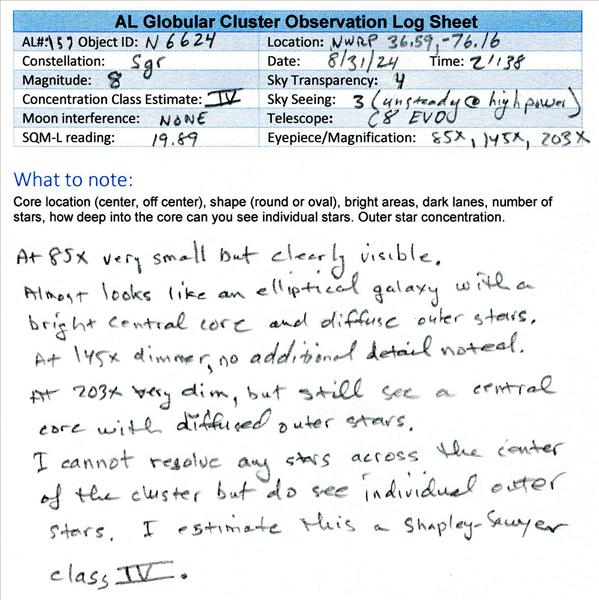 AL Globular Cluster Observation Log Sheet
AL#: 157 Object ID: N 6624 Location: NWRP 36.59, -76.16
Constellation: Sgr Date: 8/31/24 Time: 21:38
Magnitude: 8 Sky Transparency: 4
Concentration Class Estimate: IV Sky Seeing: 3 (unsteady @ high power)
Moon interference: NONE Telescope: C8 EVO
SQM-L reading: 19.89 Eyepiece/Magnification: 85x, 145x, 203x
What to note:
Core location (center, off center), shape (round or oval), bright areas, dark lanes, number of
stars, how deep into the core can you see individual stars. Outer star concentration.
At 85x very small but clearly visible.
Almost looks like an elliptical galaxy with a
bright central core and diffuse outer stars.
At 145x dimmer, no additional detail noted.
At 203x very dim, but still see a central
core with diffused outer stars.
I cannot resolve any stars across the center
of the cluster but do see individual outer
stars. I estimate this a Shapley-Sawyer
class IV.